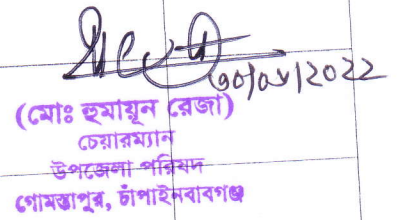 ৩০/০৮/2022
(মোঃ হুমায়ূন রেজা)
চেয়ারম্যান
উপজেলা পরিষদ
গোমস্তাপুর, চাঁপাইনবাবগঞ্জ